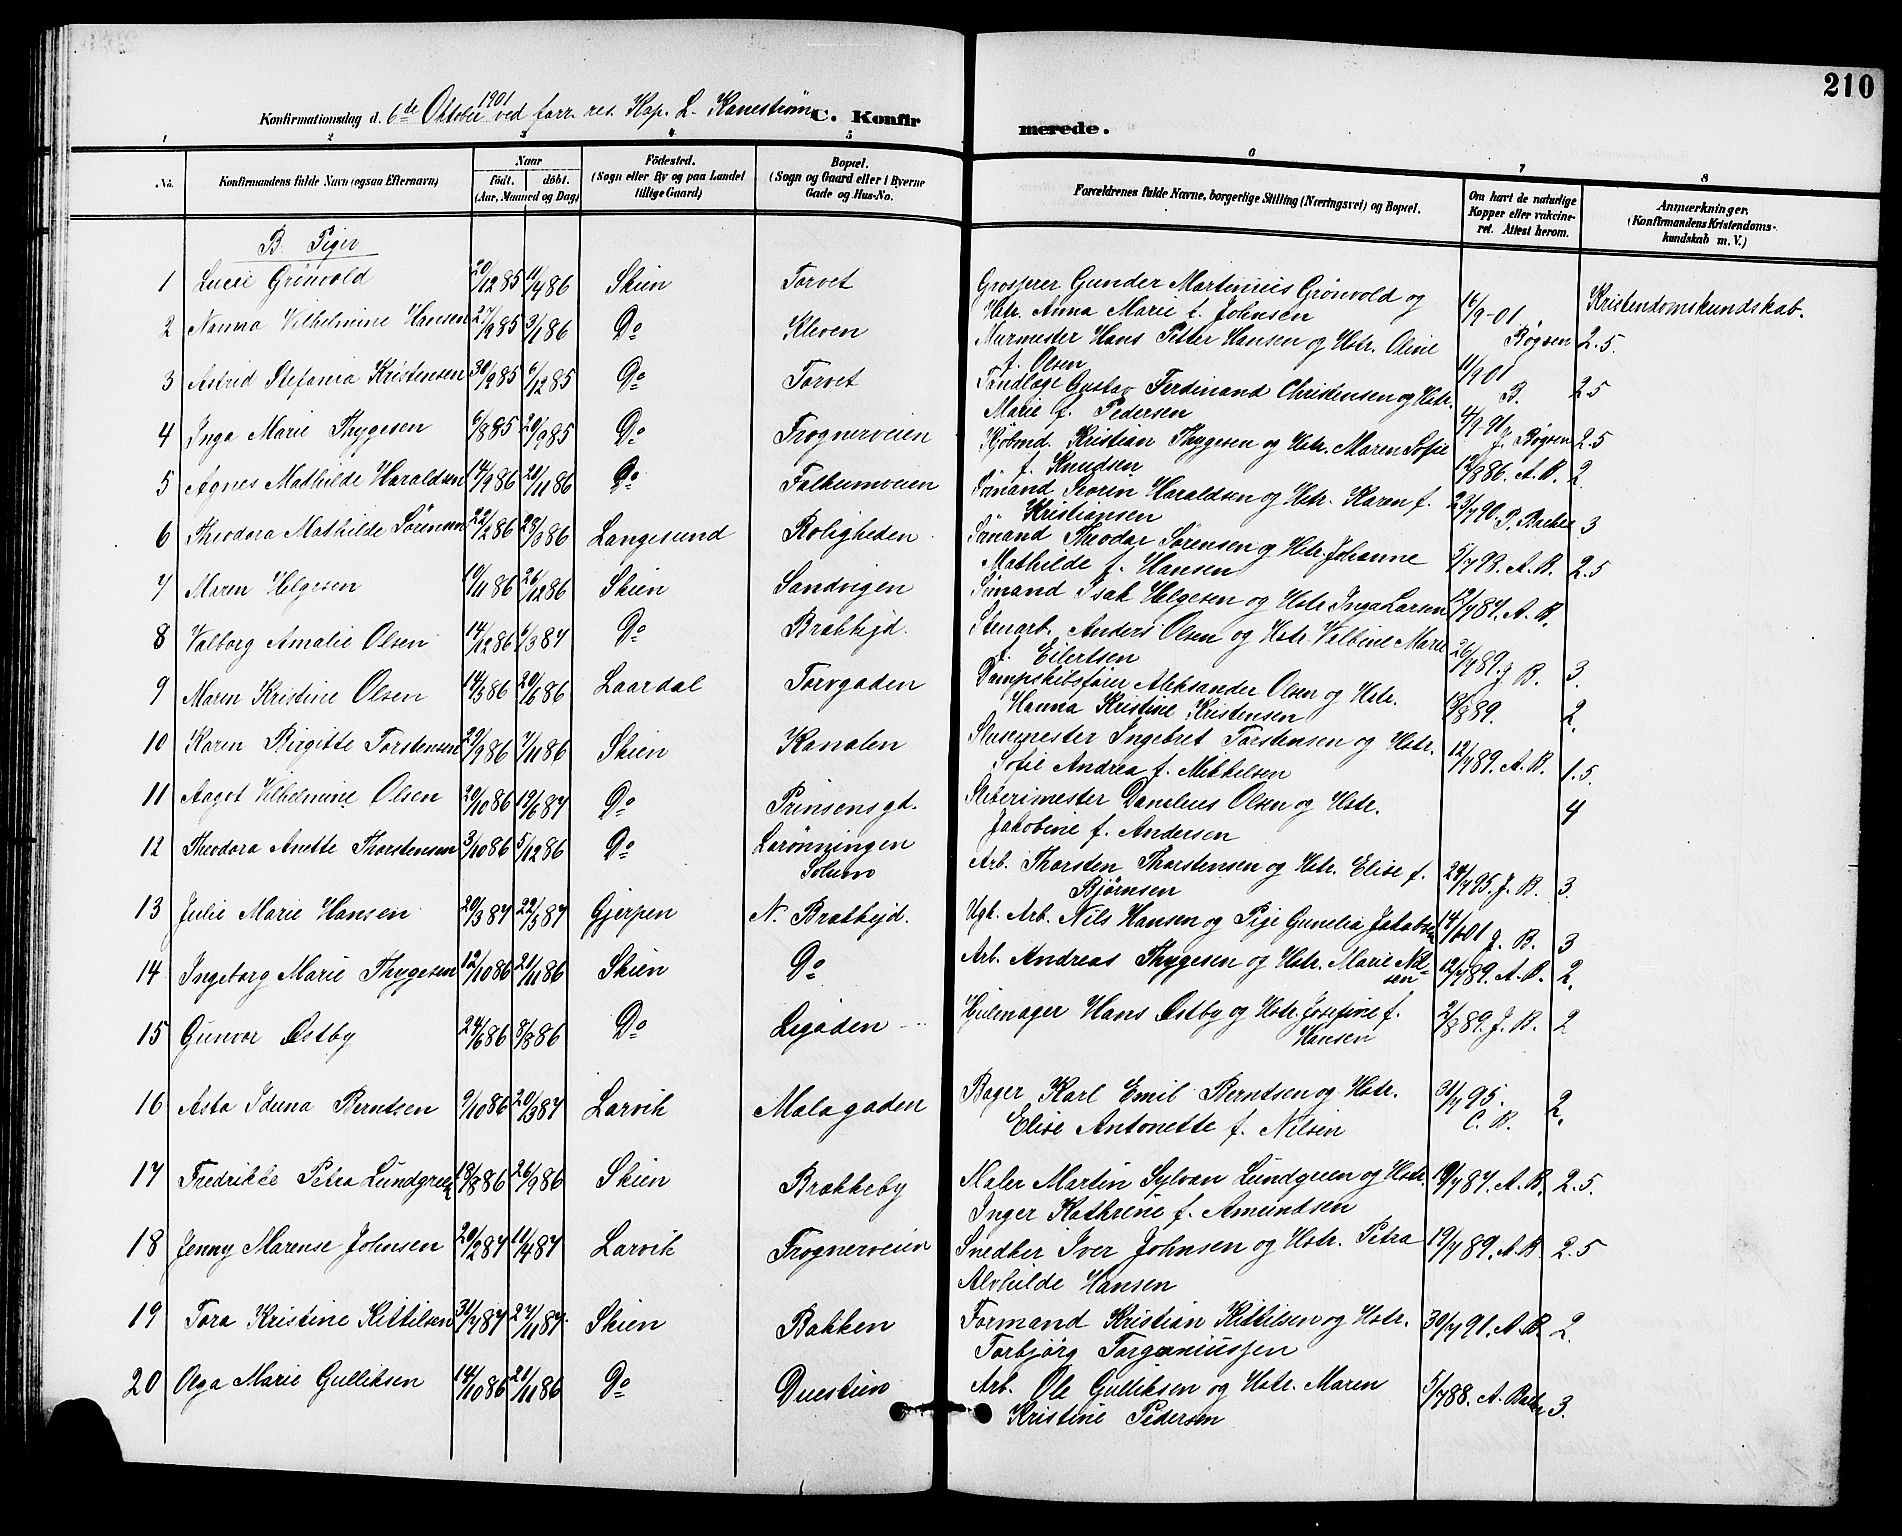 210
Konfirmationsdag d. 6de Oktober 1901 ved forr. res. Kap. L. Kanestrøm
C. Konfirmerede.
1 2 3 4 5 6 7 8
No. Konfirmandens fulde Navn (ogsaa Efternavn) Naar født. døbt. (Aar, Maaned og Dag) Fødested. (Sogn eller By og paa Landet tillige Gaard) Bopæl. (Sogn og Gaard eller i Byerne Gade og Hus-No. Forældrenes fulde Navne, borgerlige Stilling (Næringsvei) og Bopæl. Om havt de naturlige Kopper eller vakcineret. Attest herom. Anmærkninger. (Konfirmandens Kristendomskundskab m. V.)
B. Piger
Kristendomskundskab.
1 Lucie Grönvold 20/12 85 11/4 86 Skien Torvet Grosserer Gunder Martinius Grönvold og
Hstr. Anna Marie f. Johnsen 16/9-01. Bøgsen 2.5.
2 Nanna Vilhelmine Hansen 27/9 85 3/1 86 Do Kleven Murmester Hans Petter Hansen og Hstr. Oline
f. Olsen 11/9 01 B. 2.5
3 Astrid Stefania Kristensen 30/9 85 6/12 85 Do Torvet Tandlæge Gustav Ferdinand Christensen og Hstr.
Marie f. Pedersen J. Bøgsen 2.5
4 Inga Marie Thygesen 6/8 85 20/9 85 Do Frognerveien Kjöbmd. Kristian Thygesen og Hstr. Maren Sofie
f. Knudsen 12/8 86. A. B. 2.
5 Agnes Mathilde Haraldsen 14/9 86 20/11 86 Do Falkumveien Sömand Severin Haraldsen og Hstr. Karen f.
Kristiansen 3
6 Theodora Mathilde Sörensen 22/2 86 28/3 86 Langesund Roligheden Sömand Theodor Sörensen og Hstr. Johanne
Mathilde f. Hansen A. B. 2.5
7 Maren Helgesen 10/11 86 26/12 86 Skien Sandvigen Sömand Isak Helgesen og Hstr. Inga Larsen A. B.
8 Valborg Amalie Olsen 14/12 86 6/3 87 Do Brækkejd. Stenarb. Anders Olsen og Hstr. Valbine Marie
f. Eilertsen 26/7 89. J. B. 3.
9 Maren Kristine Olsen 14/5 86 20/6 86 Laardal Torvgaden Dampskibsförer Aleksander Olsen og Hstr.
Hanna Kristine Kristensen 2.
10 Karen Birgitte Torstensen 29/9 86 7/11 86 Skien Kanalen Slusemester Ingebret Torstensen og Hstr.
Sofie Andrea f. Mikkelsen 12/7 89. A. B. 1.5.
11 Aagot Vilhelmine Olsen 29/10 86 19/6 87 Do Prinsensgd. Sliberimester Danelius Olsen og Hstr.
Jakobine f. Andersen 4
12 Theodora Anette Thorstensen 3/10 86 5/12 86 Do Lorönningen
Solum Arb. Thorsten Thorstensen og Hstr. Elise f.
Björnsen 24/7 95. J. B. 3.
13 Julie Marie Hansen 20/3 87 22/5 87 Gjerpen N. Brækkejd. Ugk. Arb. Nils Hansen og Pige Gunelia Jakobsen J. B. 3
14 Ingeborg Marie Thygesen 12/10 86 21/11 86 Skien Do Arb. Andreas Thygesen og Hstr. Marie Nilsen 12/7 89. A. B. 2.
15 Gunvor Østby 24/6 86 8/8 86 Do Ligaden Hjulmager Hans Østby og Hstr. Josefine f.
Hansen 2/8 89. J. B. 2
16 Asta Iduna Berntsen 9/10 86 20/3 87 Larvik Malagaden Bager Karl Emil Berntsen og Hstr.
Elise Antonette f. Nilsen 31/7 95. C. B. 2.
17 Fredrikke Petra Lundgreen 18/8 86 26/9 86 Skien Brækkeby Maler Martin Sylvan Lundgreen og Hstr.
Inger Kathrine f. Amundsen 19/7 87. A. B. 2.5.
18 Jenny Marense Johnsen 20/2 87 11/4 87 Larvik Frognerveien Snedker Iver Johnsen og Hstr. Petra
Alvhilde Hansen 19/7 89. A. B 2.5
19 Tora Kristine Kittilsen 31/7 87 27/11 87. Skien Bakken Formand Kristian Kittilsen og Hstr.
Torbjörg Torgeniussen 30/7 91. A. B. 2.
20 Olga Marie Gulliksen 14/10 86 21/11 86 Do Duestien Arb. Ole Gulliksen og Hstr. Maren
Kristine Pedersen 5/7 88. 3.